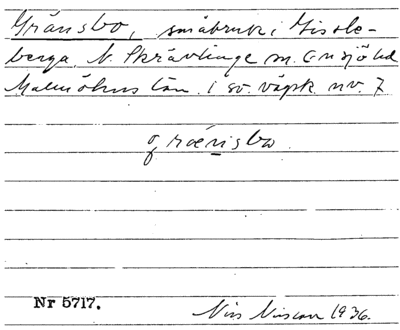 Gränsbo, småbruk i Gissle-
berga. N. Skrävlinge sn. Onsjö hd
Malmöhus län. i sv. väpk. nv. 7
græn̲sbo
Nr 5717.
Nils Nilsson 1936.